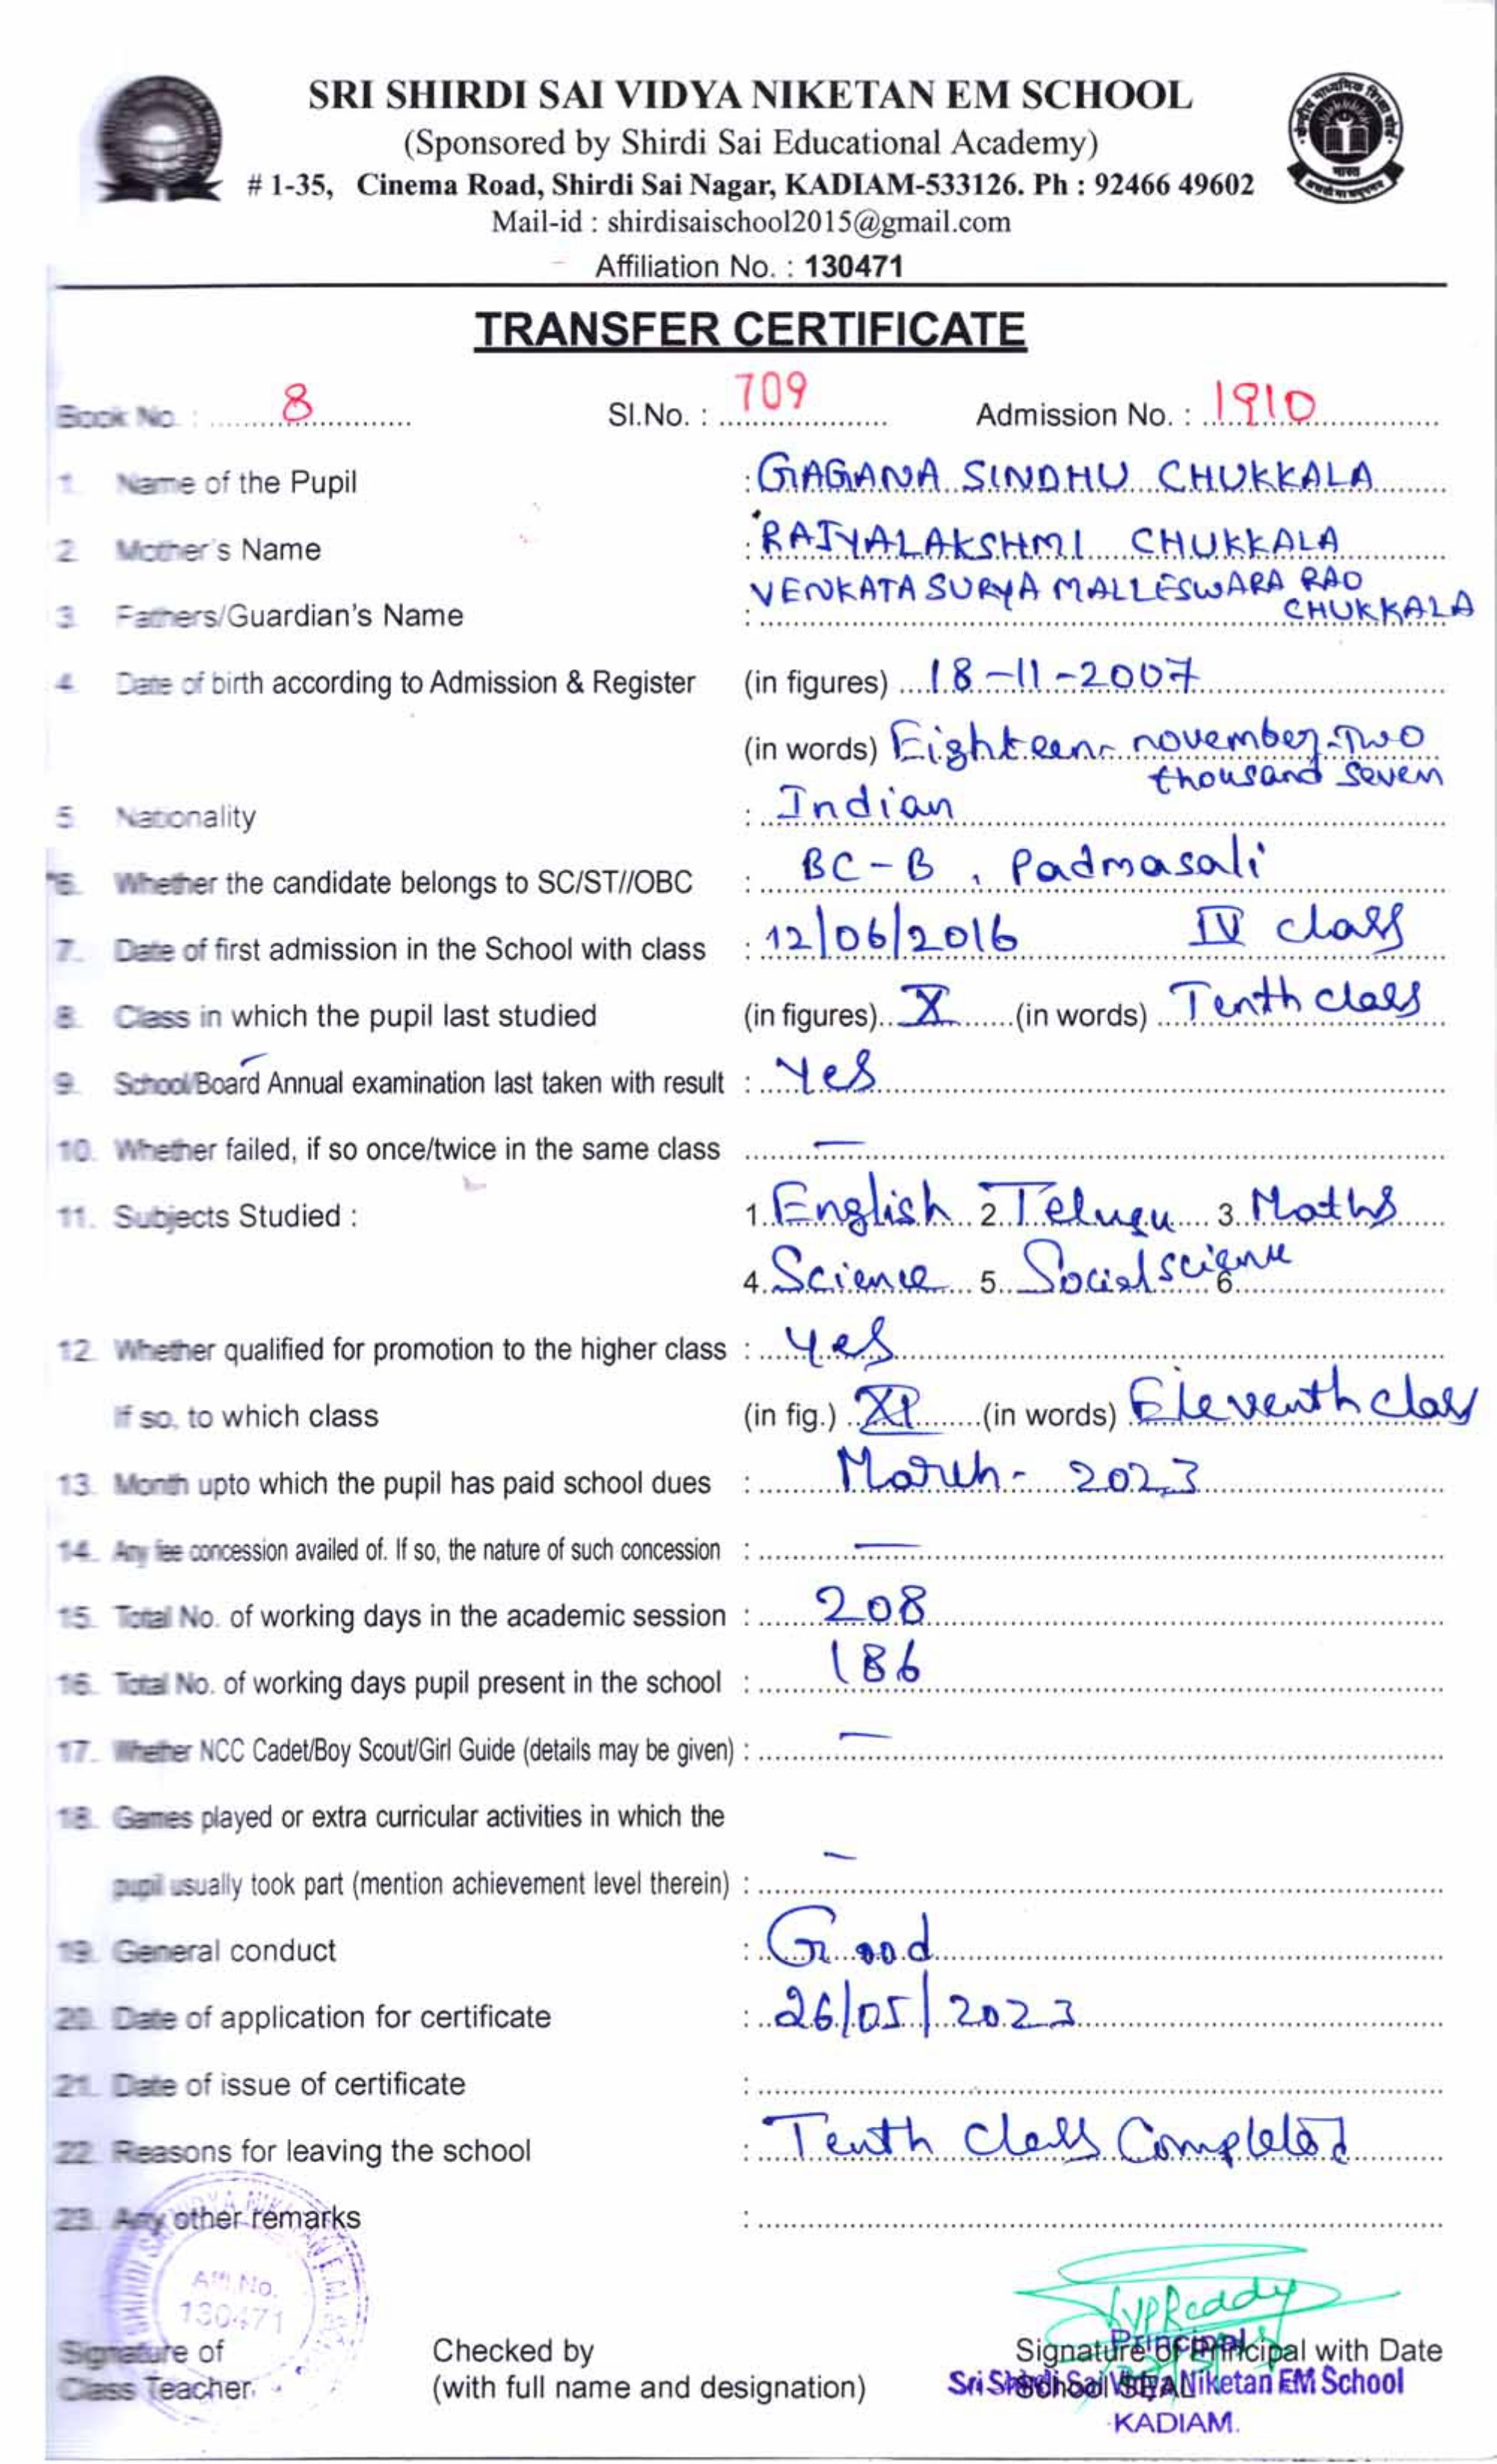 SRI SHIRDI SAI VIDYA NIKETAN EM SCHOOL
(Sponsored by Shirdi Sai Educational Academy)
# 1-35, Cinema Road, Shirdi Sai Nagar, KADIAM-533126. Ph : 92466 49602
Mail-id : shirdisaischool2015@gmail.com
Affiliation No. : 130471
TRANSFER CERTIFICATE
Book No. : 8 Sl.No. : 709 Admission No. : 1910
1. Name of the Pupil : GAGANA SINDHU CHUKKALA
2. Mother's Name : RAJYALAKSHMI CHUKKALA
3. Fathers/Guardian's Name : VENKATA SURYA MALLESWARA RAO
CHUKKALA
4. Date of birth according to Admission & Register (in figures) 18-11-2007
(in words) Eighteen november Two
thousand Seven
5. Nationality : Indian
*6. Whether the candidate belongs to SC/ST//OBC : BC-B, Padmasali
7. Date of first admission in the School with class : 12/06/2016 IV class
8. Class in which the pupil last studied (in figures) X (in words) Tenth class
9. School/Board Annual examination last taken with result : Yes
10. Whether failed, if so once/twice in the same class —
11. Subjects Studied : 1. English 2. Telugu 3. Maths
4. Science 5. Social science 6.
12. Whether qualified for promotion to the higher class : Yes
If so, to which class (in fig.) XI (in words) Eleventh class
13. Month upto which the pupil has paid school dues : March - 2023
14. Any fee concession availed of. If so, the nature of such concession : —
15. Total No. of working days in the academic session : 208
16. Total No. of working days pupil present in the school : 186
17. Whether NCC Cadet/Boy Scout/Girl Guide (details may be given) : —
18. Games played or extra curricular activities in which the
pupil usually took part (mention achievement level therein) : —
19. General conduct : Good
20. Date of application for certificate : 26/05/2023
21. Date of issue of certificate :
22. Reasons for leaving the school : Tenth Class Completed
23. Any other remarks :
Affi.No.
130471
SVPReddy
Principal
Signature of Checked by Signature of Principal with Date
Class Teacher. (with full name and designation) School SEAL
Sri Shirdi Sai Vidya Niketan EM School
KADIAM.